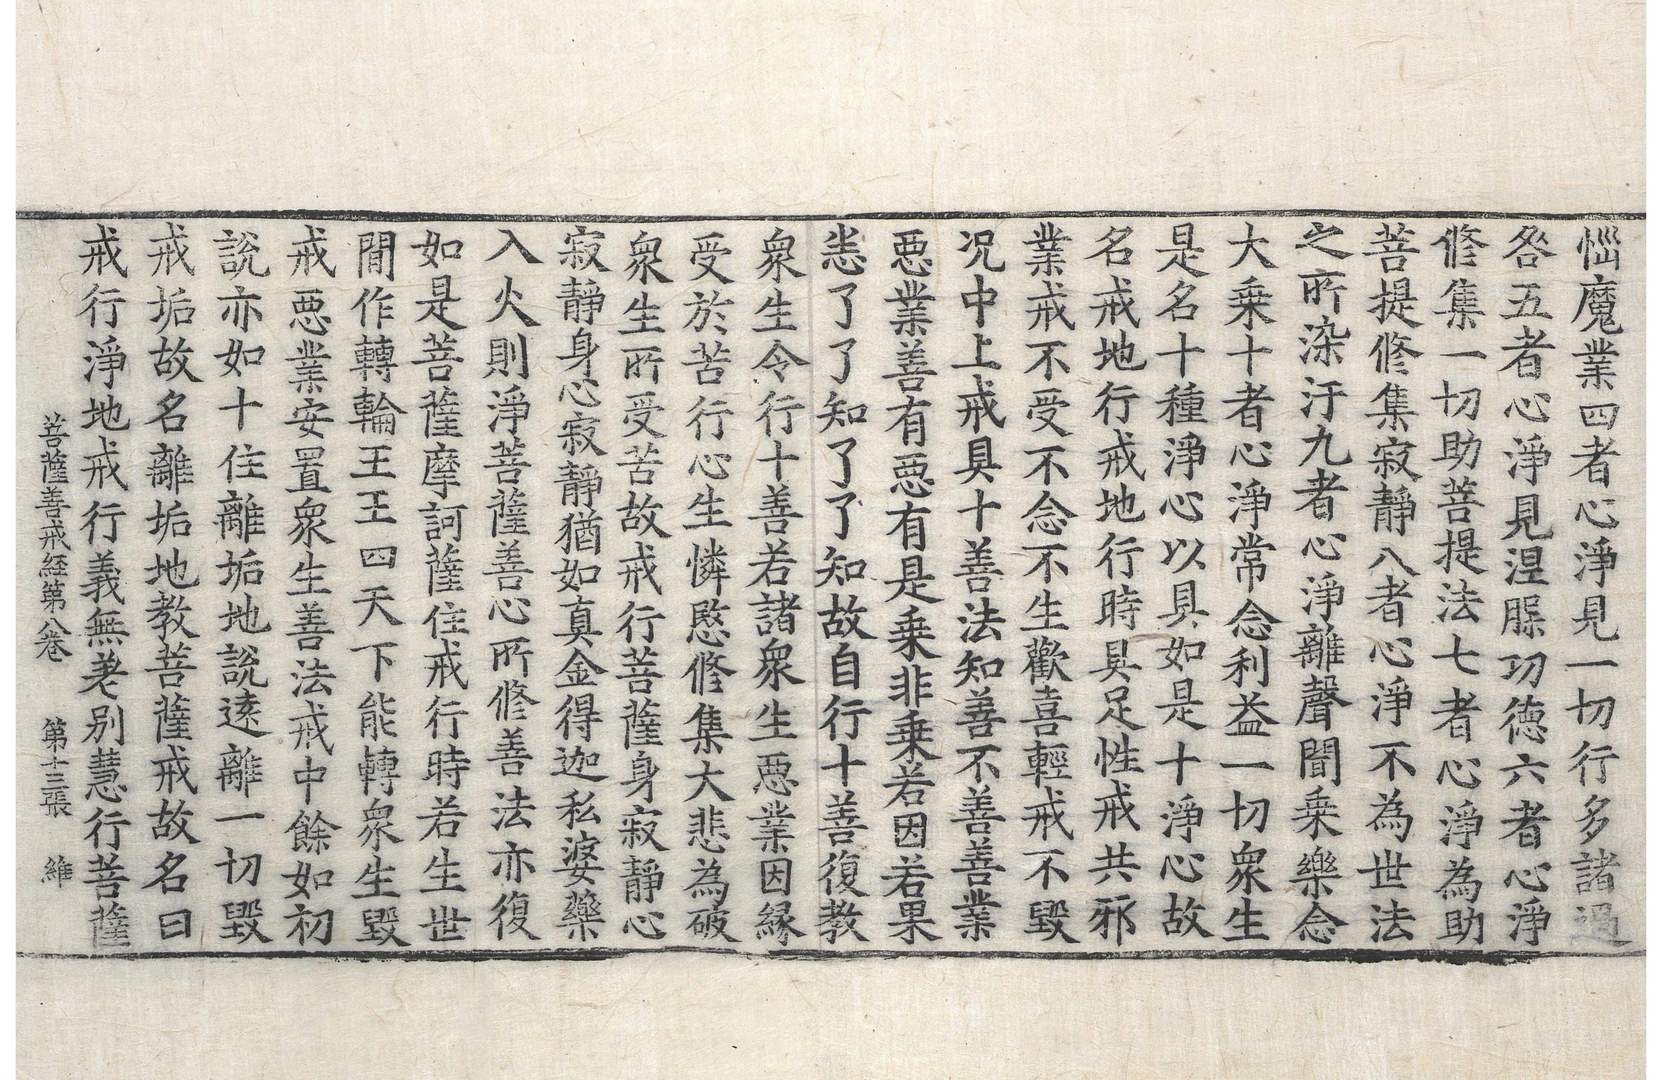 惱魔業四者心淨見一切行多諸過
咎五者心淨見涅槃功德六者心淨
修集一切助菩提法七者心淨為助
菩提修集寂靜八者心淨不為世法
之所染汙九者心淨離聲聞乗樂念
大乗十者心淨常念利益一切衆生
是名十種淨心以具如是十淨心故
名戒地行戒地行時具足性戒共邪
業戒不受不念不生歡喜輕戒不毀
况中上戒具十善法知善不善善業
惡業善有惡有是乗非乗若因若果
悉了了知了了知故自行十善復教
衆生令行十善若諸衆生惡業因緣
受於苦行心生憐愍修集大悲為破
衆生所受苦故戒行菩薩身寂靜心
寂靜身心寂靜猶如真金得迦私婆藥
入火則淨菩薩善心所修善法亦復
如是菩薩摩訶薩住戒行時若生世
間作轉輪王王四天下能轉衆生毀
戒惡業安置衆生善法戒中餘如初
說亦如十住離垢地說遠離一切毀
戒垢故名離垢地教菩薩戒故名曰
戒行淨地戒行義無差別慧行菩薩
菩薩善戒經第八卷 第十三張 維